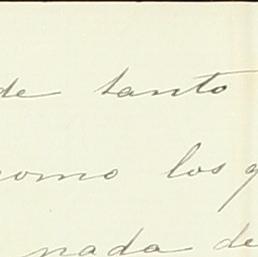 de tanto
como los q
nada de